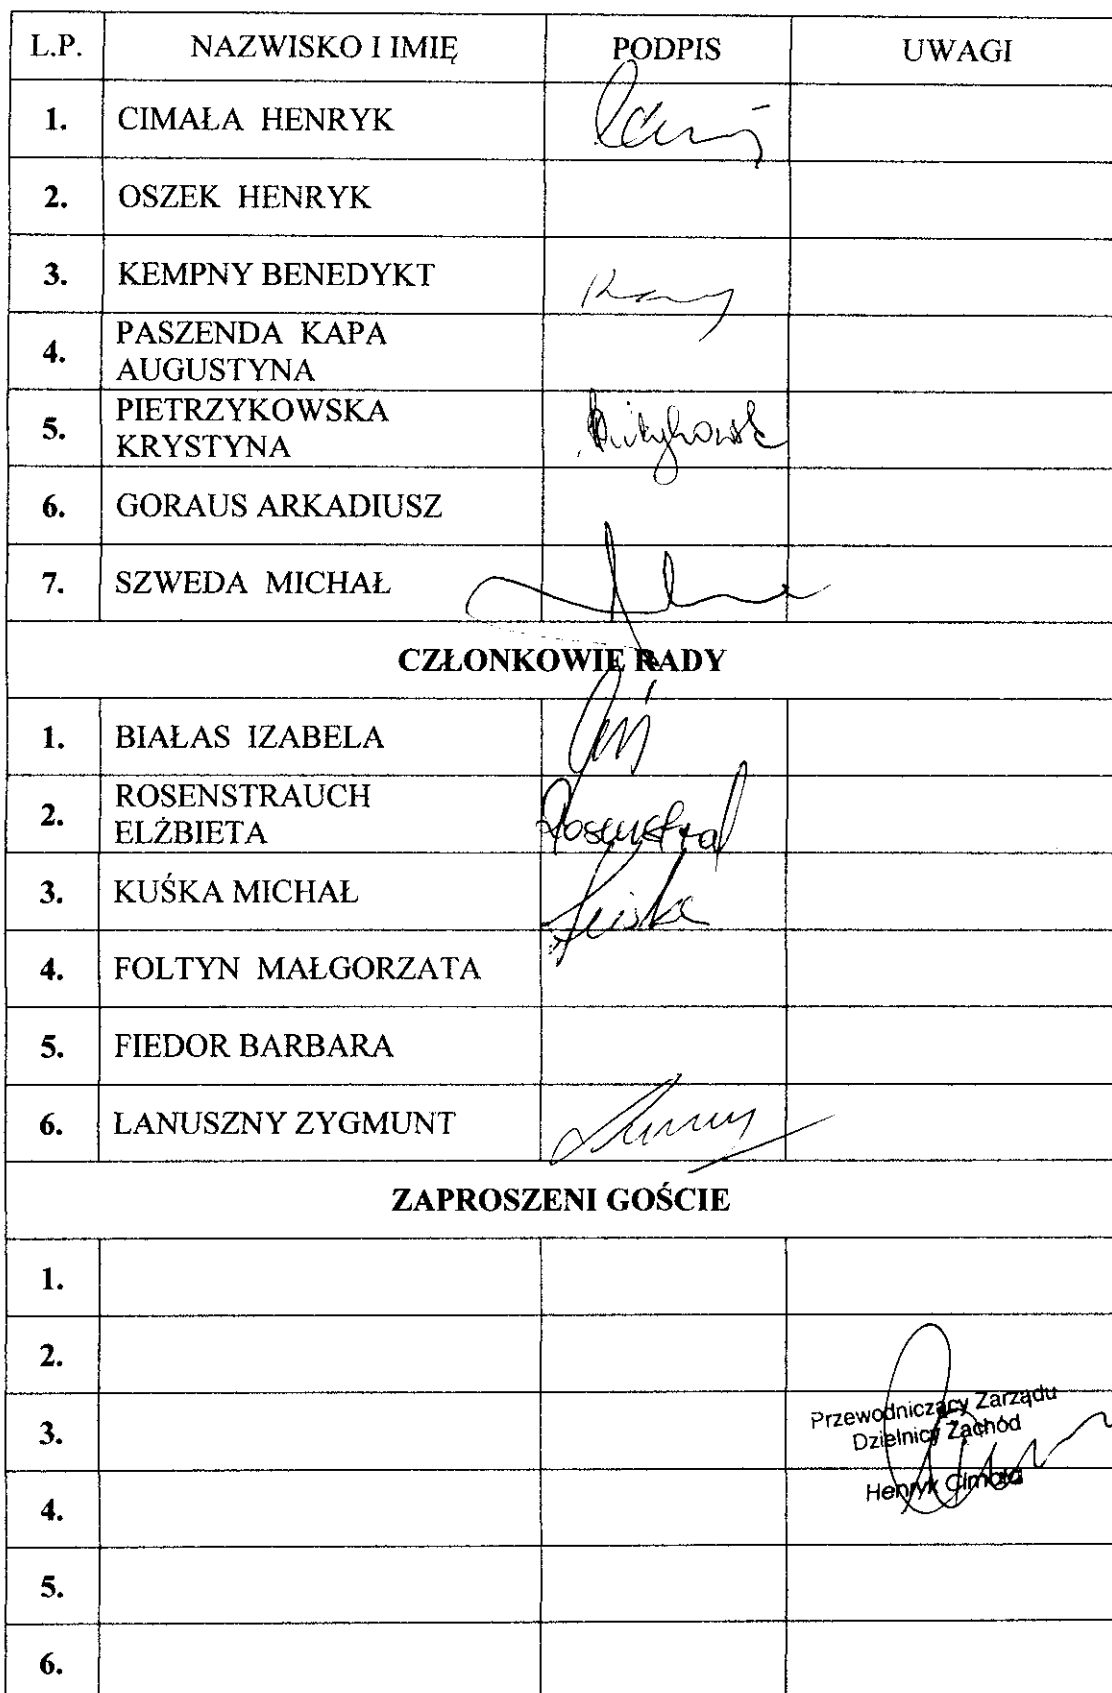 L.P. NAZWISKO I IMIĘ PODPIS UWAGI
1. CIMAŁA HENRYK
2. OSZEK HENRYK
3. KEMPNY BENEDYKT
4. PASZENDA KAPA
AUGUSTYNA
5. PIETRZYKOWSKA
KRYSTYNA
6. GORAUS ARKADIUSZ
7. SZWEDA MICHAŁ
CZŁONKOWIE RADY
1. BIAŁAS IZABELA
2. ROSENSTRAUCH
ELŻBIETA
3. KUŚKA MICHAŁ
4. FOLTYN MAŁGORZATA
5. FIEDOR BARBARA
6. LANUSZNY ZYGMUNT
ZAPROSZENI GOŚCIE
1.
2.
3.
Przewodniczący Zarządu
Dzielnicy Zachód
Henryk Cimała
4.
5.
6.